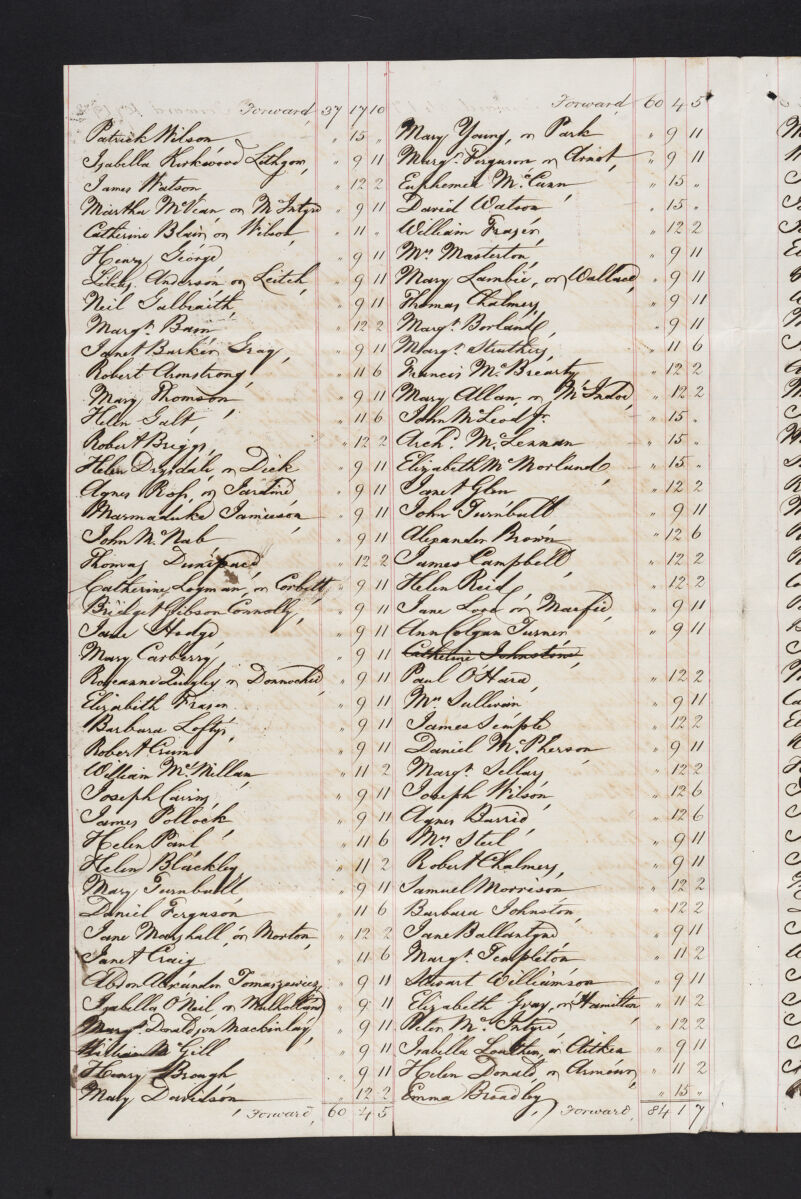 Forward, 37 17 10
Patrick Wilson " 15 "
Isabella Kirkwood Lithgow, " 9 11
James Watson " 12 2
Martha McVean, or McIntyre " 9 11
Catherine Blair, or Wilson, " 11 "
Henry George " 9 11
Anderson or Leitch, " 9 11
Neil Galbraith, " 9 11
Margt. Bain " 12 2
Janet Barker Gray, " 9 11
Robert Armstrong, " 11 6
Mary Thomson " 9 11
Helen Galt, " 11 6
Robert Briggs, " 12 2
Helen Drysdale or Dick " 9 11
Agnes Ross, or Jardine " 9 11
Marmaduke Jamieson " 9 11
John McNab " 9 11
Thomas Dunipace, " 12 2
Catherine Logman, or Corbett, " 9 11
Bridget Gibson Connolly, " 9 11
Jane Hodge " 9 11
Mary Carberry " 9 11
Roseanne Quigley or Donnochie, " 9 11
Elizabeth Fraser " 9 11
Barbara Loftus, " 9 11
Robert Crum " 9 11
William McMillan " 11 2
Joseph Cairns, " 9 11
James Pollock " 9 11
Helen Paul " 11 6
Helen Blackley " 11 2
Mary Turnbull, " 9 11
Daniel Ferguson " 11 6
Jane Marshall, or Morton, " 12 2
Janet Craig " 11 6
Abdon Alexandon Tomaszewicz, " 9 11
Isabella ONeil or Mulholland " 9 11
Margt. Donaldson Mackinlay, " 9 11
William McGill " 9 11
Henry Brough " 9 11
Mary Davidson " 12 2
Forward, 60 4 5
Forward, 60 4 5
Mary Young, or Park " 9 11
Margt. Ferguson or Arnot, " 9 11
Euphemia McCann " 15 "
David Watson " 15 "
William Fraser, " 12 2
Mrs Masterton, " 9 11
Mary Lambie, or Wallace, " 9 11
Thomas Chalmers, " 9 11
Margt. Borland, " 9 11
Margt. Struthers, " 11 6
Francis McBrearty " 12 2
Mary Allan, or McIndoe, " 12 2
John McLeod Jr. " 15 "
Archd. McLennan " 15 "
Elizabeth McMorland, " 15 "
Janet Glen " 12 2
John Turnbull " 9 11
Alexander Brown " 12 6
James Campbell, " 12 2
Helen Reid, " 12 2
Jane Lord or Marfie, " 9 11
Ann Colgan Turner " 9 11
Catherine Johnstone
Paul O'Hara, " 12 2
Mrs Sullivan " 9 11
James Semple " 12 2
Daniel McPherson " 9 11
Margt. Sellars " 12 2
Joseph Wilson, " 12 6
Agnes Barrie " 12 6
Mrs Steel " 9 11
Robert Chalmers, " 9 11
Samuel Morrison " 12 2
Barbara Johnston, " 12 2
Jane Ballantyne " 9 11
Margt. Templeton " 11 2
Stewart Williamson " 9 11
Elizabeth Gray, or Hamilton " 11 2
Helen McIntyre " 12 2
Isabella or Aitken " 9 11
Helen Donald, or Armour, " 11 2
Emma Broadley, " 15 "
Forward, 84 1 7